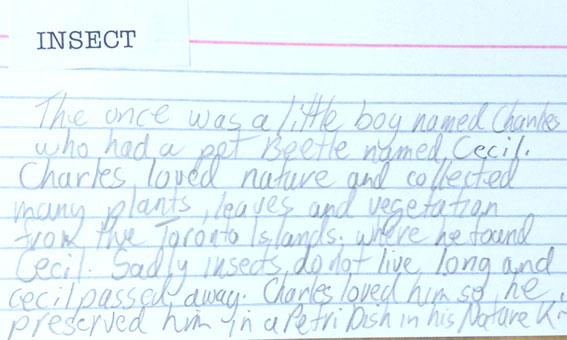 INSECT
The once was a little boy named Charles
who had a pet Beetle named Cecil.
Charles loved nature and collected
many plants, leaves and vegetation
from the Toronto Islands. where he found
Cecil. Sadly insects do not live long and
cecil passed away. Charles loved him so he
preserved him in a Petri Dish in his Nature K